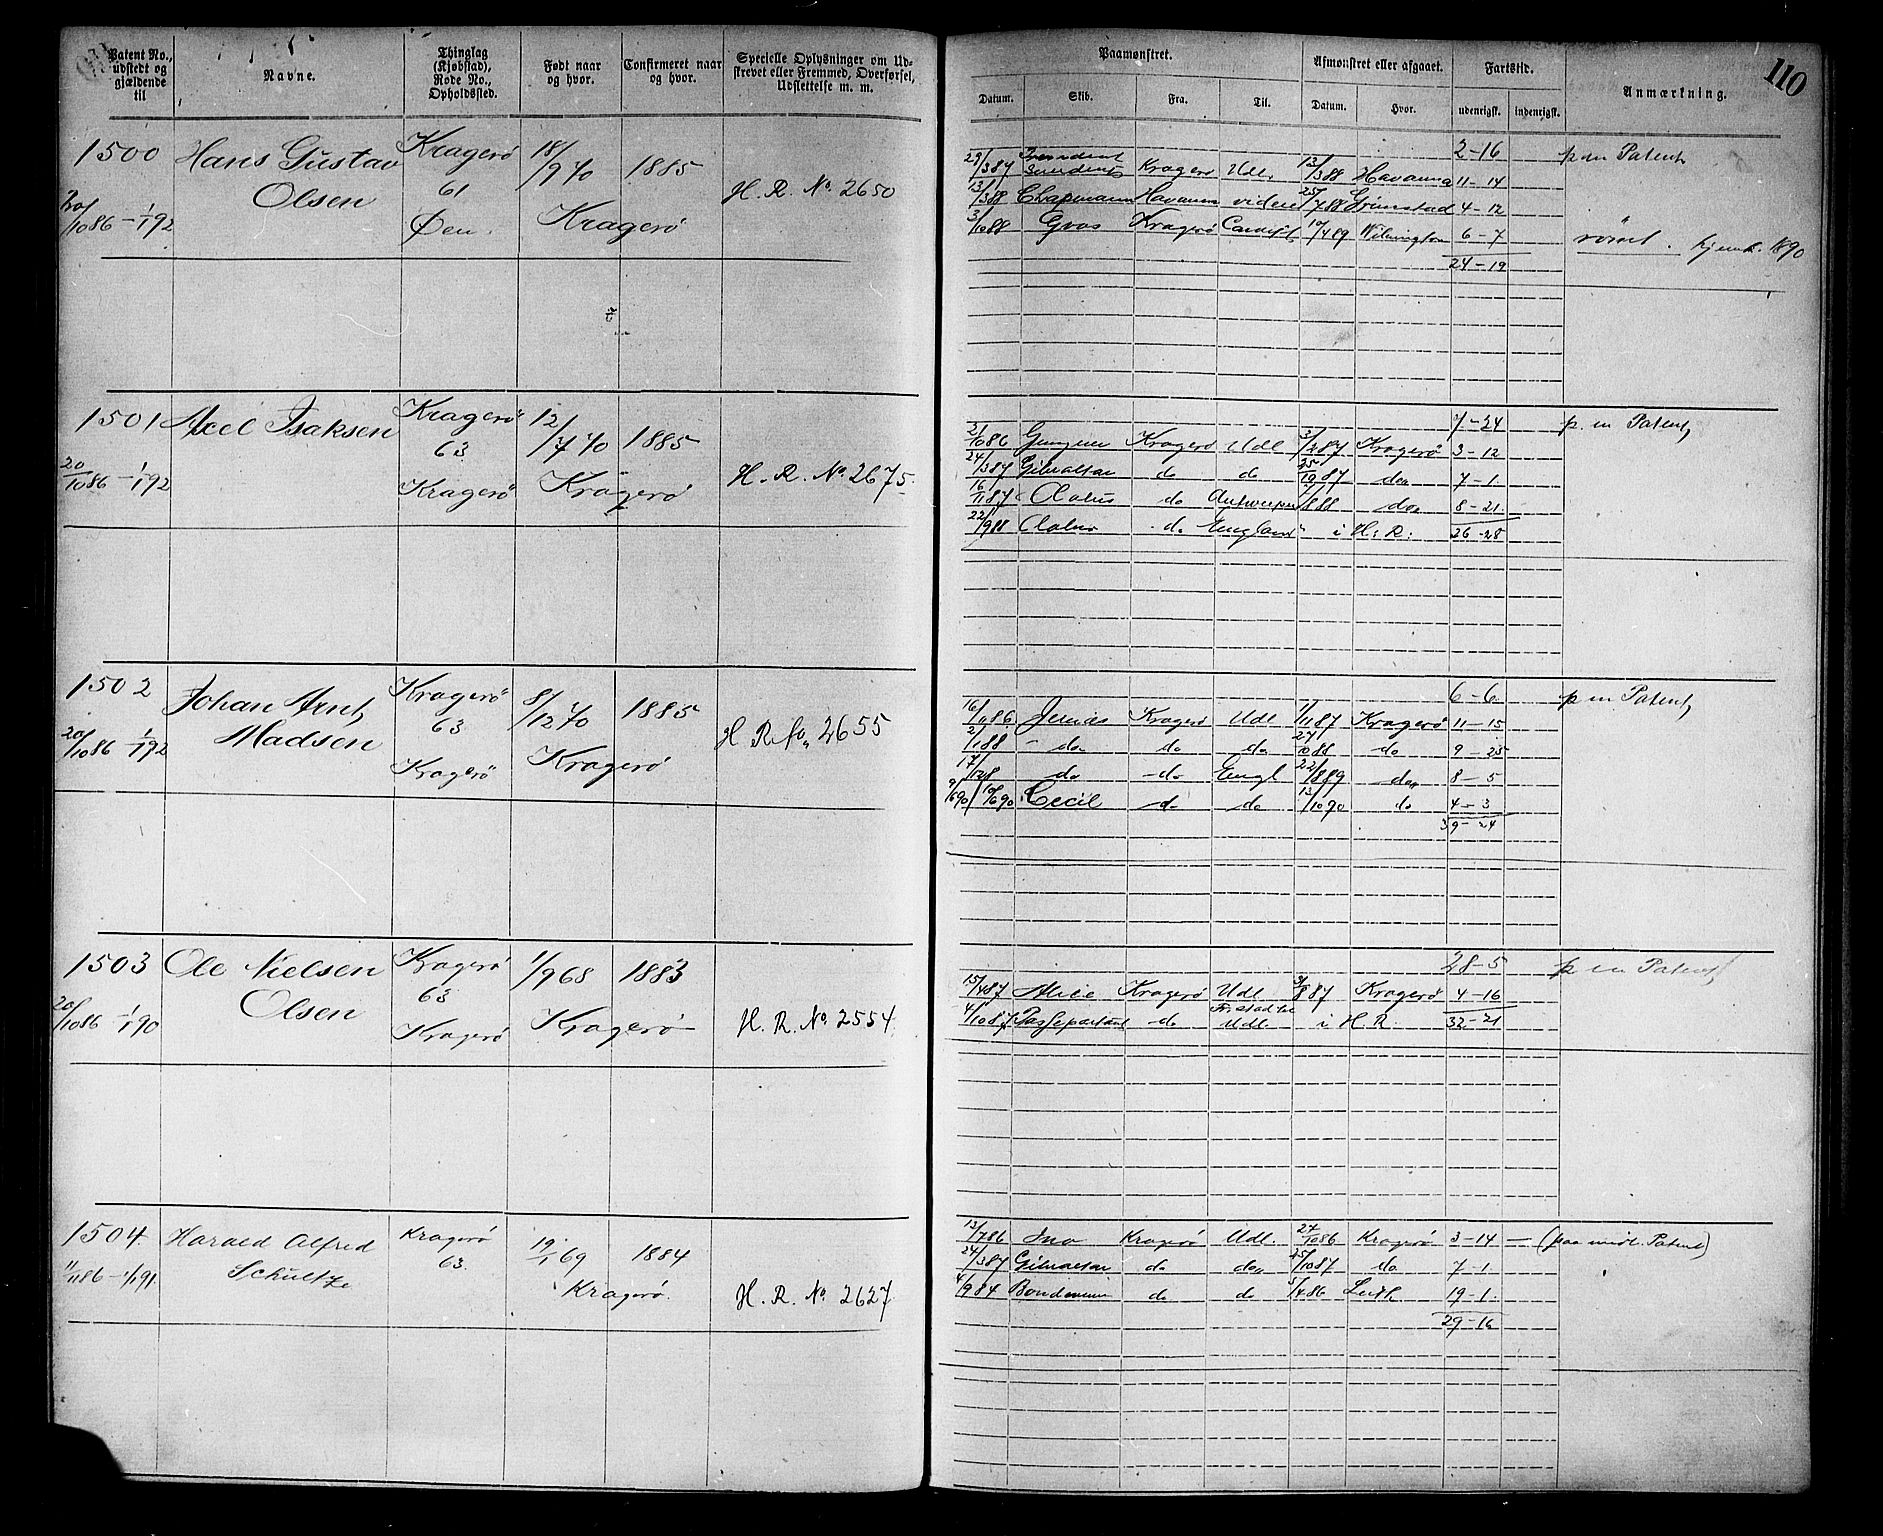 110
Patent No., udstedt og gjældende til
Navne.
Thinglag (Kjøbstad), Rode No., Opholdssted.
Født naar og hvor.
Confirmeret naar og hvor.
Specielle Oplysninger om Udskrevet eller Fremmed, Overførsel, Udslettelse m. m.
Paamønstret.
Datum. Skib. Fra. Til.
Afmønstret eller afgaaet.
Datum. Hvor.
Fartstid.
udenrigsk. indenrigsk.
Anmærkning.
1500 Hans Gustav Kragerø 18/9 70 1885
Olsen 61 H. R. No. 2650
20/10 86 - 1/1 92 Øen. Kragerø
2-16 p m Patent
29/3 87 Kragerø Udl. 13/3 88 Havanna 11-14
13/3 88 Chapmann Havanna videre 25/7 88 Grimstad 4-12
3/10 88 Kragerø Cardiff 17/4 89 Wilmington 6-7 rømt. hjemk. 1890
24-19
1501 Axel Isaksen Kragerø 12/7 70 1885
63 H. R. No. 2675
20/10 86 - 1/1 92 Kragerø Kragerø
7-24 p. m Patent
Kragerø Udl 3/2 87 Kragerø 3-12
24/3 87 Gibraltar do do 25/10 87 do 7-1
16/11 87 do Antwerpen do 8-21
22/9 88 do England i H. R. 26-28
1502 Johan Arnt Kragerø 8/12 70 1885
Madsen 63 H. R. No. 2655
20/10 86 - 1/1 92 Kragerø Kragerø
6-6 p m Patent
Kragerø Udl Kragerø 11-15
do do do do 9-25
do do Engl 22/8 89 do 8-5
Cecil do do 13/10 90 do 4-3
39-24
1503 Ole Nielsen Kragerø 1/9 68 1883
Olsen 63 H. R. No. 2554
20/10 86 - 1/1 90 Kragerø Kragerø
28-5 p m Patent
15/4 87 Alice Kragerø Udl 87 Kragerø 4-16
4/10 87 Passepartout do Fr.stad til Udl. i H. R. 32-21
1504 Harald Alfred Kragerø 19/1 69 1884
Schultze 63
11/11 86 - 1/1 91 Kragerø. H. R. No 2627
13/7 86 Ino Kragerø Udl. 27/10 86 Kragerø 3-14 — (paa midl. Patent)
24/3 87 Gibraltar do do 25/10 87 do 7-1
4/9 84 do do 5/4 86 Leith 19-1
29-16